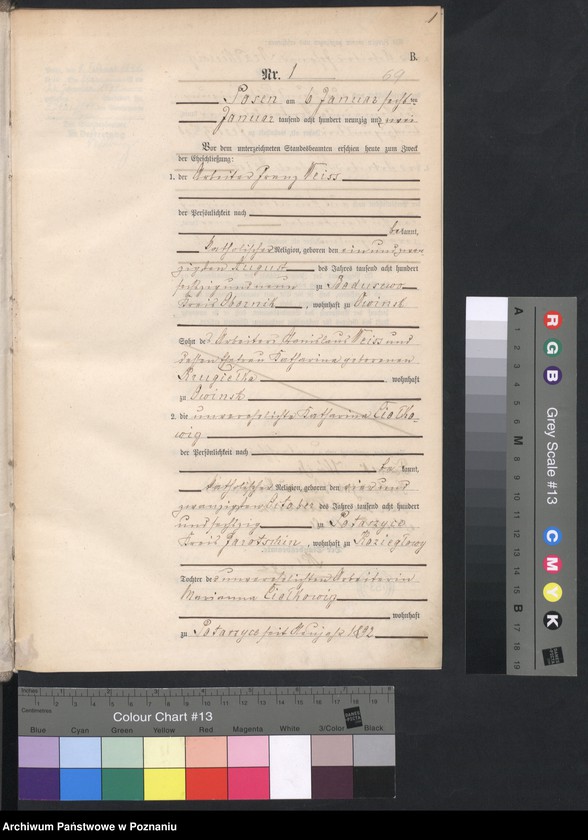 1
B.
Nr. 1
69
Posen am 6 Januar
Januar tausend acht hundert neunzig und
Vor dem unterzeichneten Standesbeamten erschien heute zum Zweck
der Eheschließung:
1. der Arbeiter Franz Weiss
der Persönlichkeit nach
bekannt,
katholischer Religion, geboren den ein und zwan-
zigsten August des Jahres tausend acht hundert
sechszig und neun zu
Kreis Obornik, wohnhaft zu Owinsk
Sohn des Arbeiters Stanislaus Weiss und
dessen Ehefrau Katharina geborenen
wohnhaft
zu Owinsk
2. die unverehelichte Katharina Ciołko-
wig
der Persönlichkeit nach
bekannt,
katholischer Religion, geboren den und
zwanzigsten October des Jahres tausend acht hundert
und sechszig zu Potarzyce
Kreis Jarotschin, wohnhaft zu Koziegłowy
Tochter der unverehelichten Arbeiterin
Marianna
wohnhaft
zu Potarzyce
Inches 1 2 3 4 5 6 7 8
Centimetres 1 2 3 4 5 6 7 8 9 10 11 12 13 14 15 16 17 18 19
Colour Chart #13
Blue Cyan Green Yellow Red Magenta White 3/Color Black
A 1 2 3 4 5 6 M 8 9 10 11 12 13 14 15 B 17 18 19
R G B
Grey Scale #13
C M Y K
Archiwum Państwowe w Poznaniu